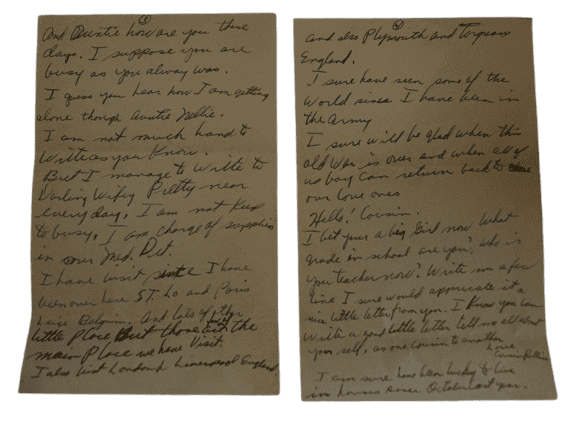 And Auntie how are you these
days. I suppose you are
busy as you alway was.
I guess you hear how I am getting
alone though Auntie Nellie.
I am not much hand to
Write as you Know.
But I manage to Write to
Darling Wify Pretty near
everyday. I am not Keep
to busy. I am charge of supplies
in our Med. Det.
I have visit since I have
been over here ST. Lo and Paris
Belgium. And lots of other
little Place But those are the
main Place we have Visit.
I also visit London Liverpool England
and also Plymouth and Torquay
England.
I sure have seen some of the
World since I have been in
the Army
I sure will be glad when this
old War is over and when all of
us boy can return back to
our love ones
Hello! Cousin.
I bet your a big Girl now What
grade in school are you? who is
you teacher now? Write me a few
line I sure would appricate it a
nice little letter from you. I Know you can
Write a good little letter tell me all about
your self, as one cousin to another
Love
Cousin
I am sure have been lucky to live
in houses since October last year.